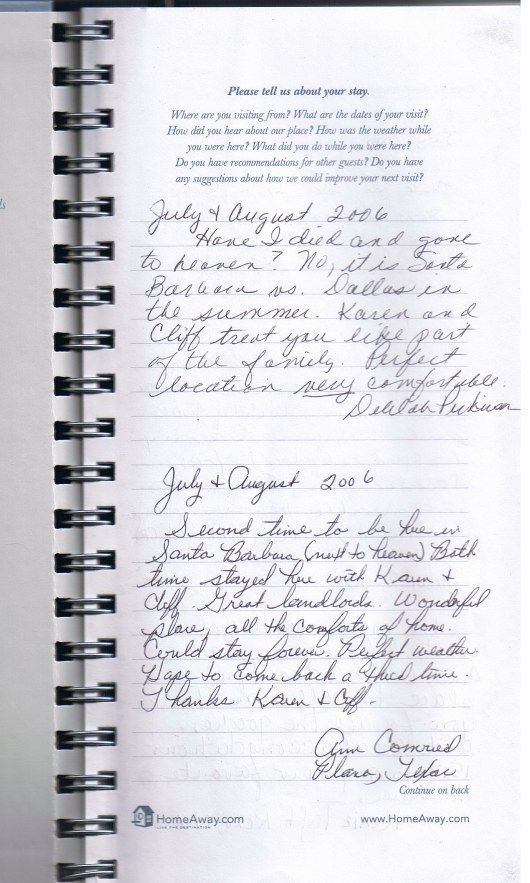 Please tell us about your stay.
Where are you visiting from? What are the dates of your visit?
How did you hear about our place? How was the weather while
you were here? What did you do while you were here?
Do you have recommendations for other guests? Do you have
any suggestions about how we could improve your next visit?
July & August 2006
Have I died and gone
to heaven? No, it is Santa
Barbara vs. Dallas in
the summer. Karen and
Cliff treat you like part
of the family. Perfect
location very comfortable.
Delilah
July & August 2006
Second time to be here in
Santa Barbara (next to heaven) Both
time stayed here with Karen &
Cliff. Great landlords. Wonderful
place, all the comforts of home.
Could stay forever. Perfect weather.
Hope to come back a third time.
Thanks Karen & Cliff.
Ann
Plano, Texas
Continue on back
HomeAway.com
LIVE THE DESTINATION
www.HomeAway.com